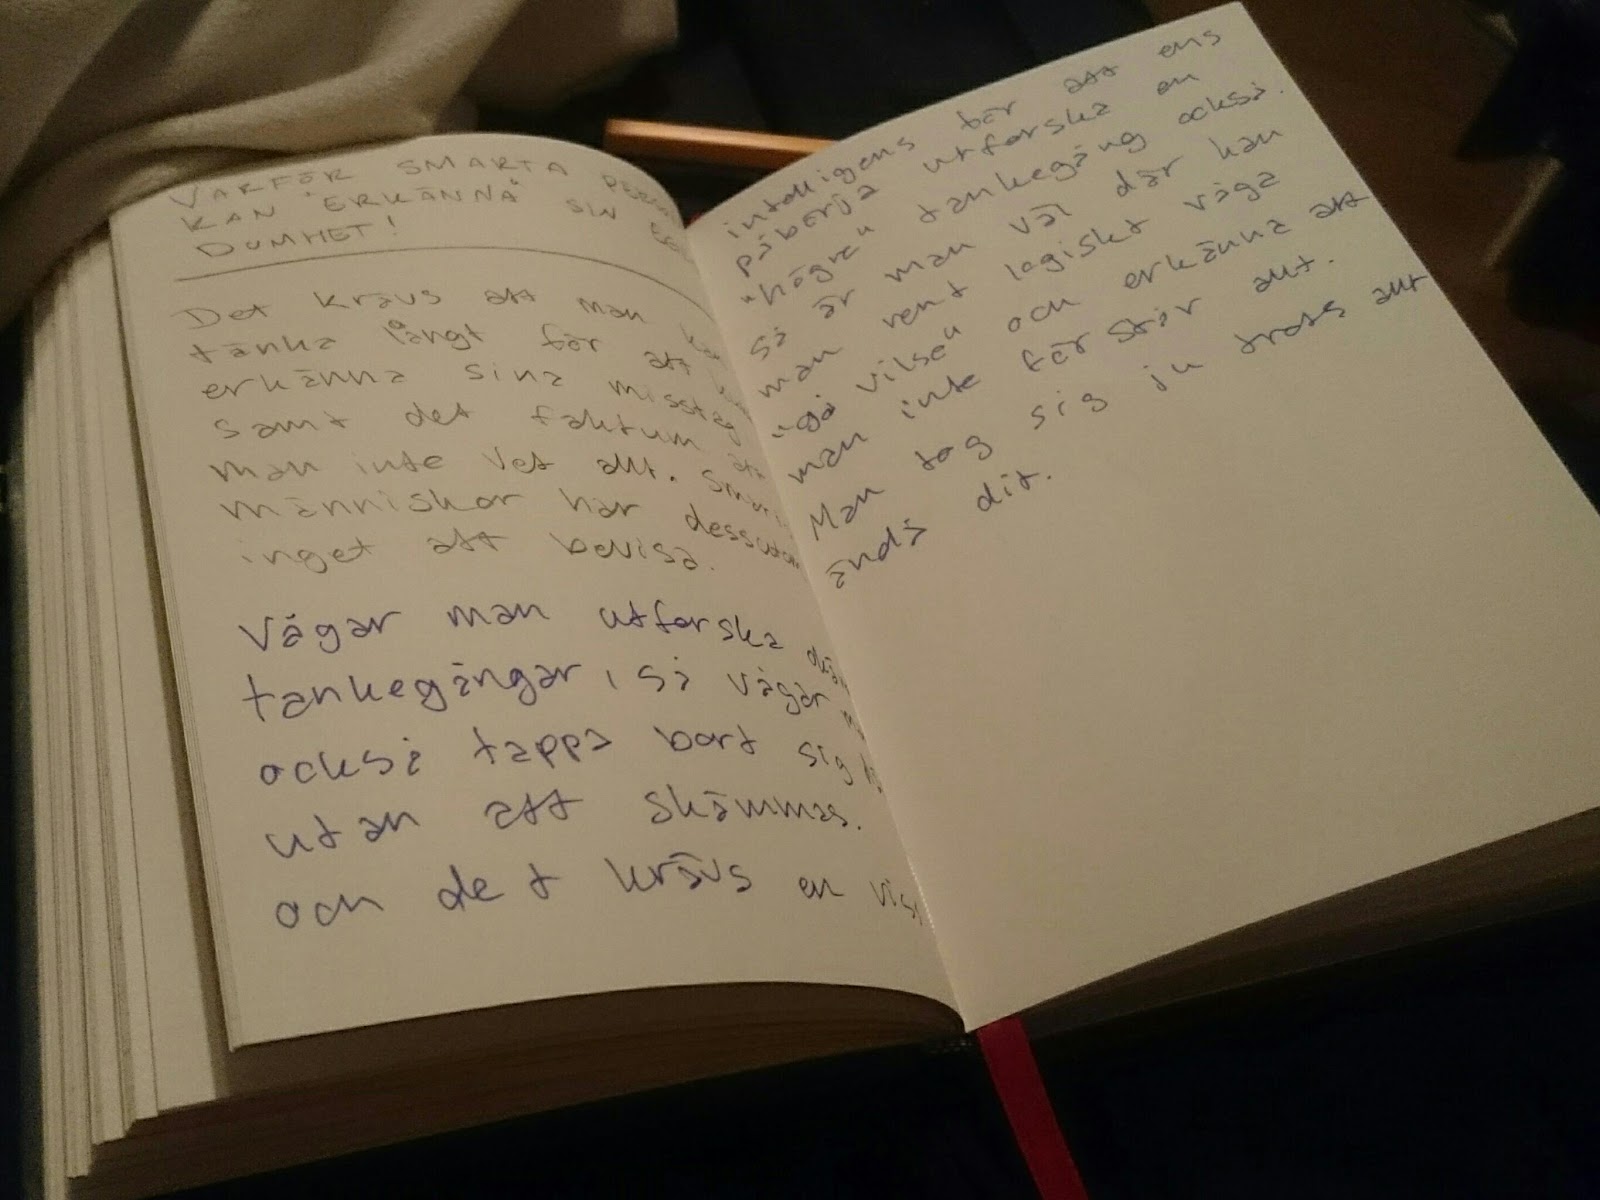 VARFÖR SMARTA
KAN "ERKÄNNA" SIN
DUMHET!
Det krävs att man kan
tänka långt för att
erkänna sina misstag
samt det faktum att
man inte vet allt. Smarta
människor har dessutom
inget att bevisa.
Vågar man utforska
tankegångar, så vågar
också tappa bort sig
utan att skämmas.
och det krävs en viss
intelligens för att ens
påbörja utforska en
"högre" tankegång också.
så är man väl där kan
man rent logiskt våga
"gå vilse" och erkänna att
man inte förstår allt.
Man tog sig ju trots allt
ändå dit.